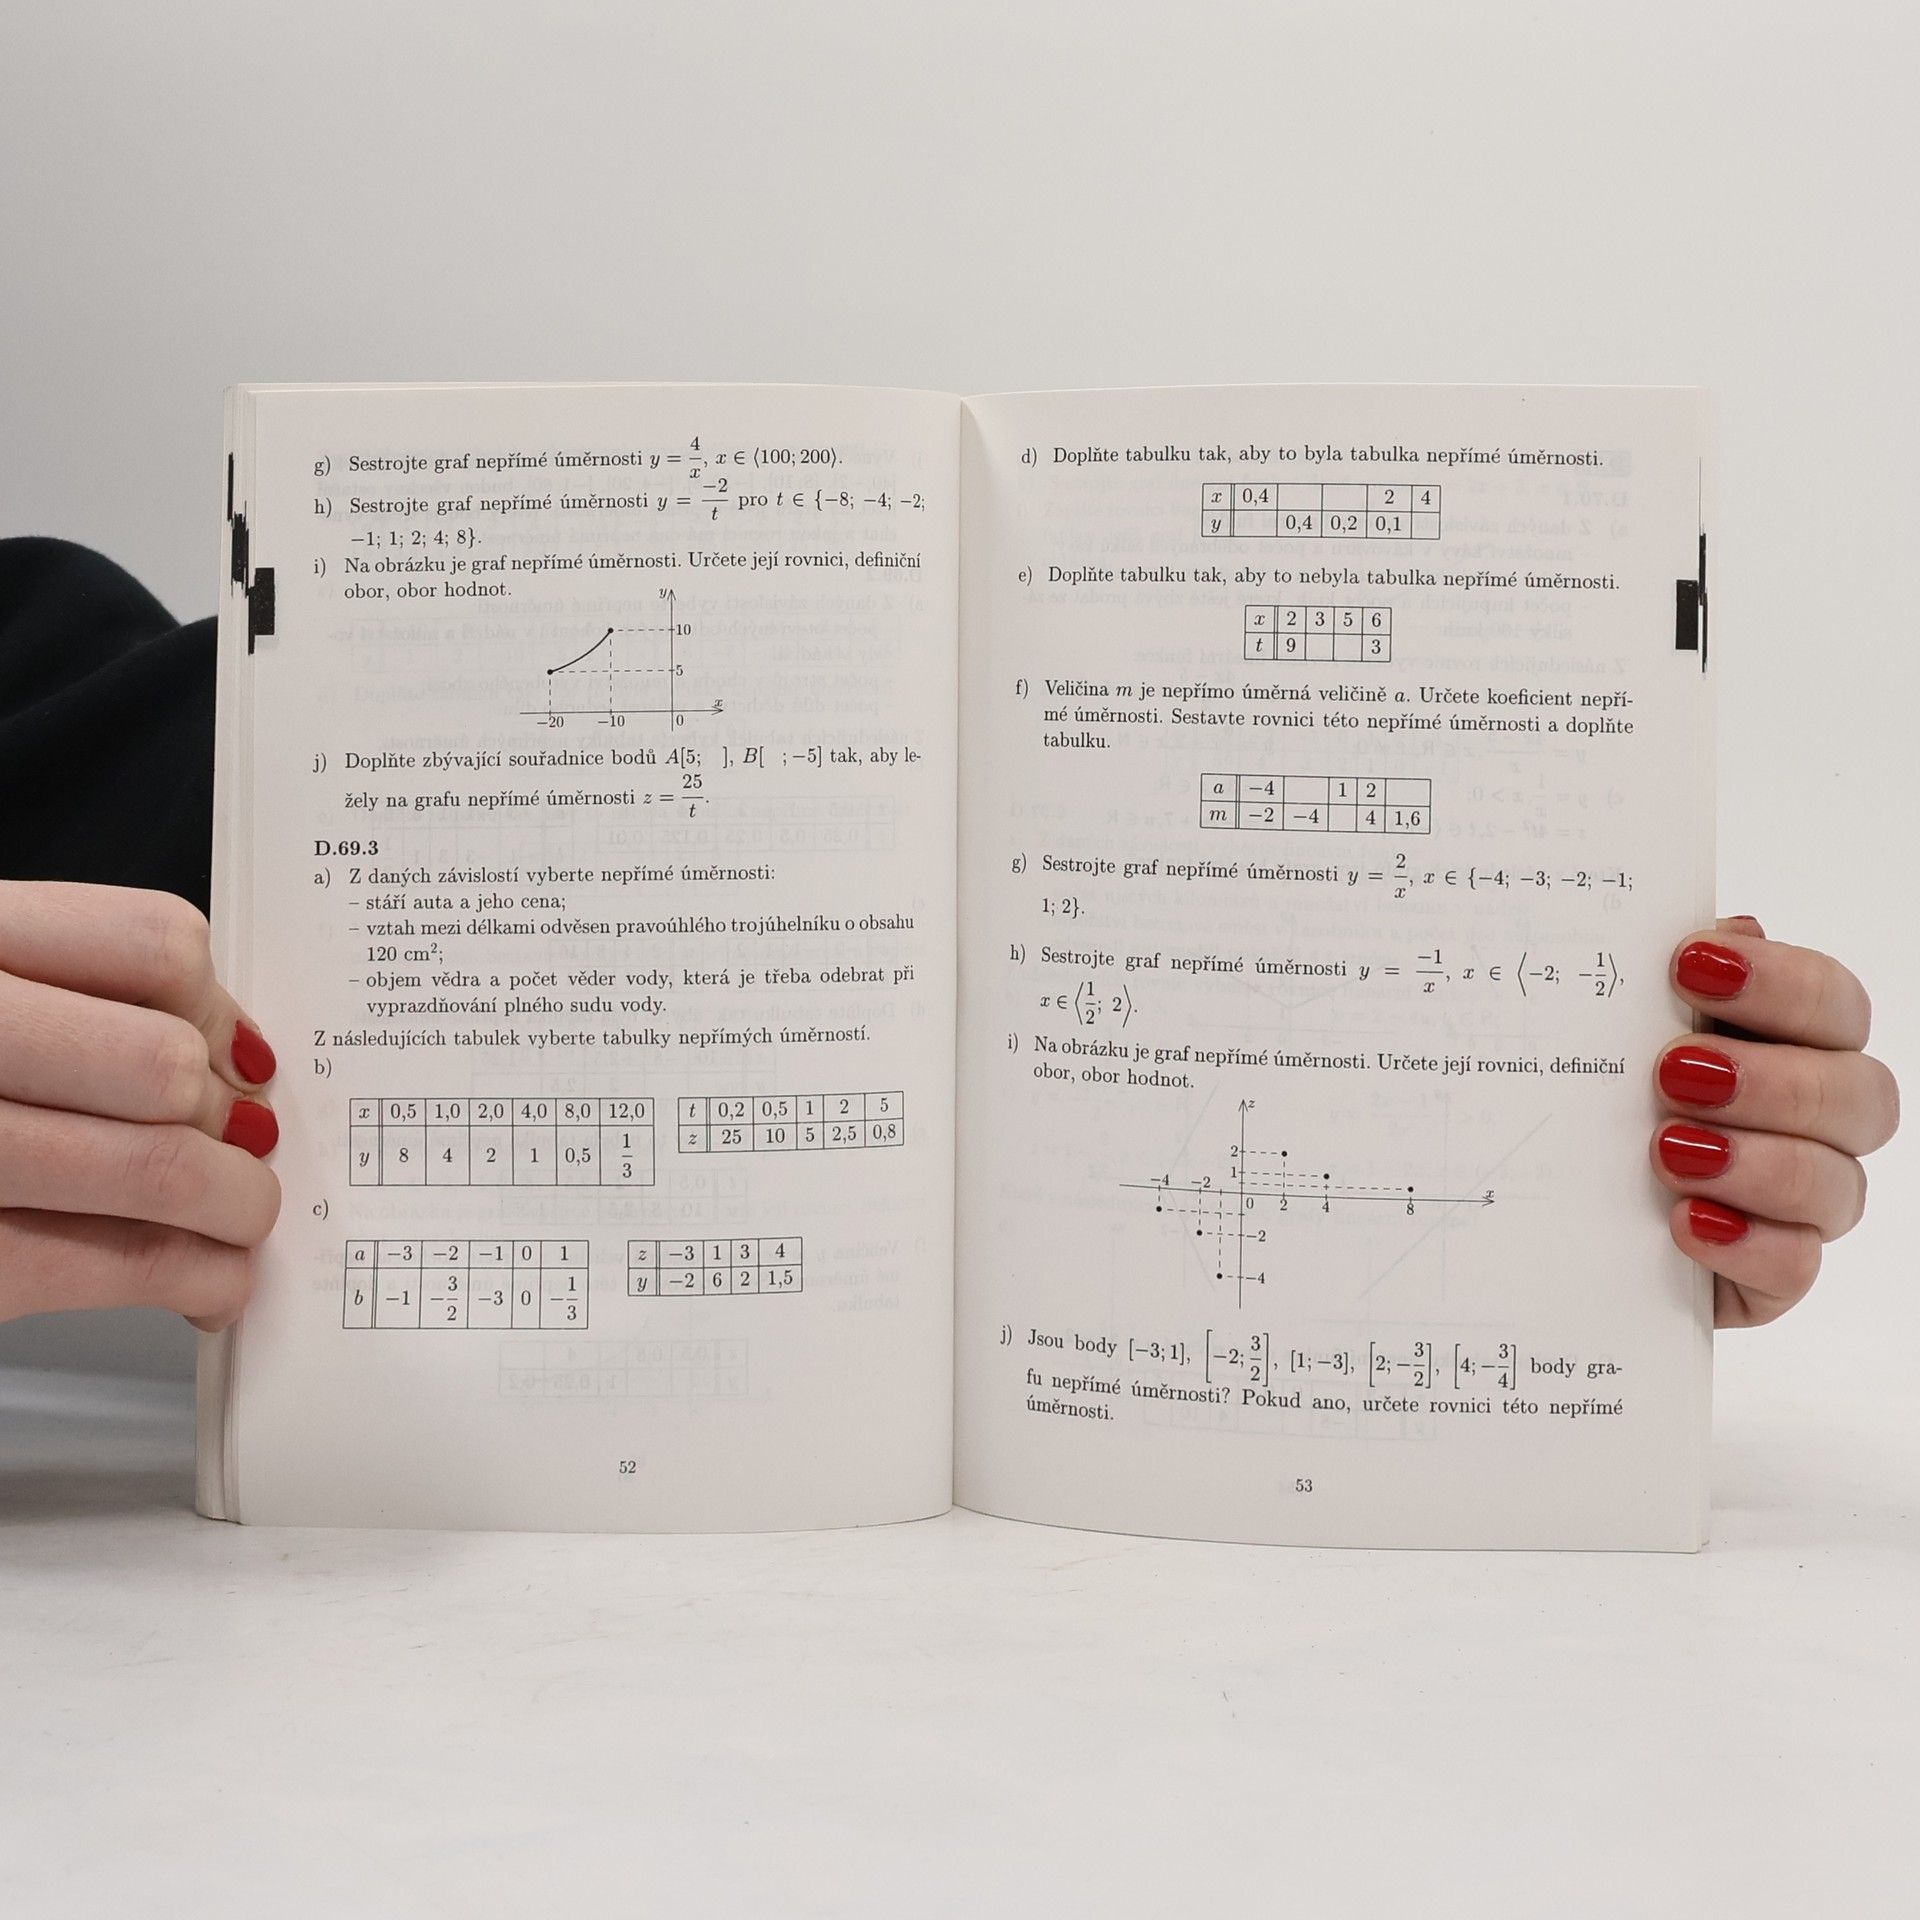 g) Sestrojte graf nepřímé úměrnosti y = 4/x, x ∈ ⟨100; 200⟩.
h) Sestrojte graf nepřímé úměrnosti y = −2/t pro t ∈ {−8; −4; −2;
−1; 1; 2; 4; 8}.
i) Na obrázku je graf nepřímé úměrnosti. Určete její rovnici, definiční
obor, obor hodnot.
y
10
5
x
−20 −10 0
j) Doplňte zbývající souřadnice bodů A[5; ], B[ ; −5] tak, aby le-
žely na grafu nepřímé úměrnosti z = 25/t.
D.69.3
a) Z daných závislostí vyberte nepřímé úměrnosti:
– stáří auta a jeho cena;
– vztah mezi délkami odvěsen pravoúhlého trojúhelníku o obsahu
120 cm²;
– objem vědra a počet věder vody, která je třeba odebrat při
vyprazdňování plného sudu vody.
Z následujících tabulek vyberte tabulky nepřímých úměrností.
b)
x 0,5 1,0 2,0 4,0 8,0 12,0
y 8 4 2 1 0,5 1/3
t 0,2 0,5 1 2 5
z 25 10 5 2,5 0,8
c)
a −3 −2 −1 0 1
b −1 −3/2 −3 0 −1/3
z −3 1 3 4
y −2 6 2 1,5
52
d) Doplňte tabulku tak, aby to byla tabulka nepřímé úměrnosti.
x 0,4 2 4
y 0,4 0,2 0,1
e) Doplňte tabulku tak, aby to nebyla tabulka nepřímé úměrnosti.
x 2 3 5 6
t 9 3
f) Veličina m je nepřímo úměrná veličině a. Určete koeficient nepří-
mé úměrnosti. Sestavte rovnici této nepřímé úměrnosti a doplňte
tabulku.
a −4 1 2
m −2 −4 4 1,6
g) Sestrojte graf nepřímé úměrnosti y = 2/x, x ∈ {−4; −3; −2; −1;
1; 2}.
h) Sestrojte graf nepřímé úměrnosti y = −1/x, x ∈ ⟨−2; −1/2⟩,
x ∈ ⟨1/2; 2⟩.
i) Na obrázku je graf nepřímé úměrnosti. Určete její rovnici, definiční
obor, obor hodnot.
z
2
1
−4 −2 x
0 2 4 8
−2
−4
j) Jsou body [−3; 1], [−2; 3/2], [1; −3], [2; −3/2], [4; −3/4] body gra-
fu nepřímé úměrnosti? Pokud ano, určete rovnici této nepřímé
úměrnosti.
53